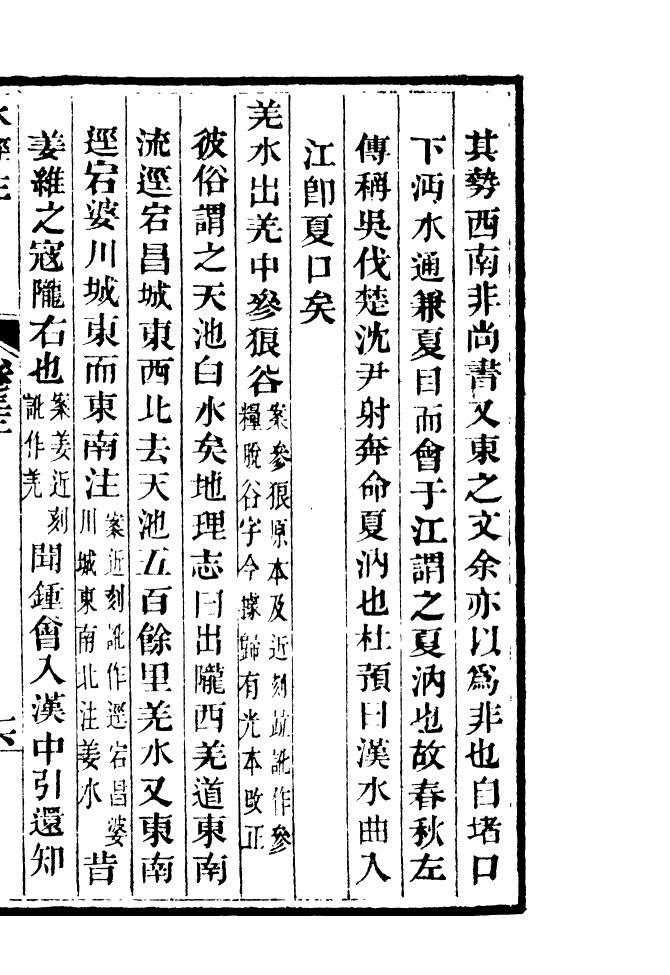 其勢西南非尚書又東之文余亦以爲非也自堵口
下沔水通兼夏目而會于江謂之夏汭也故春秋左
傳稱吳伐楚沈尹射奔命夏汭也杜預曰漢水曲入
江卽夏口矣
羌水出羌中參狼谷案參狼原本及近刻並訛作參
糧脫谷字今據歸有光本改正
彼俗謂之天池白水矣地理志曰出隴西羌道東南
流逕宕昌城東西北去天池五百餘里羌水又東南
逕宕婆川城東而東南注案近刻訛作逕宕昌婆
川城東南北注姜水昔
姜維之寇隴右也案姜近刻
訛作羌聞鍾會入漢中引還知
水經注
卷三十二